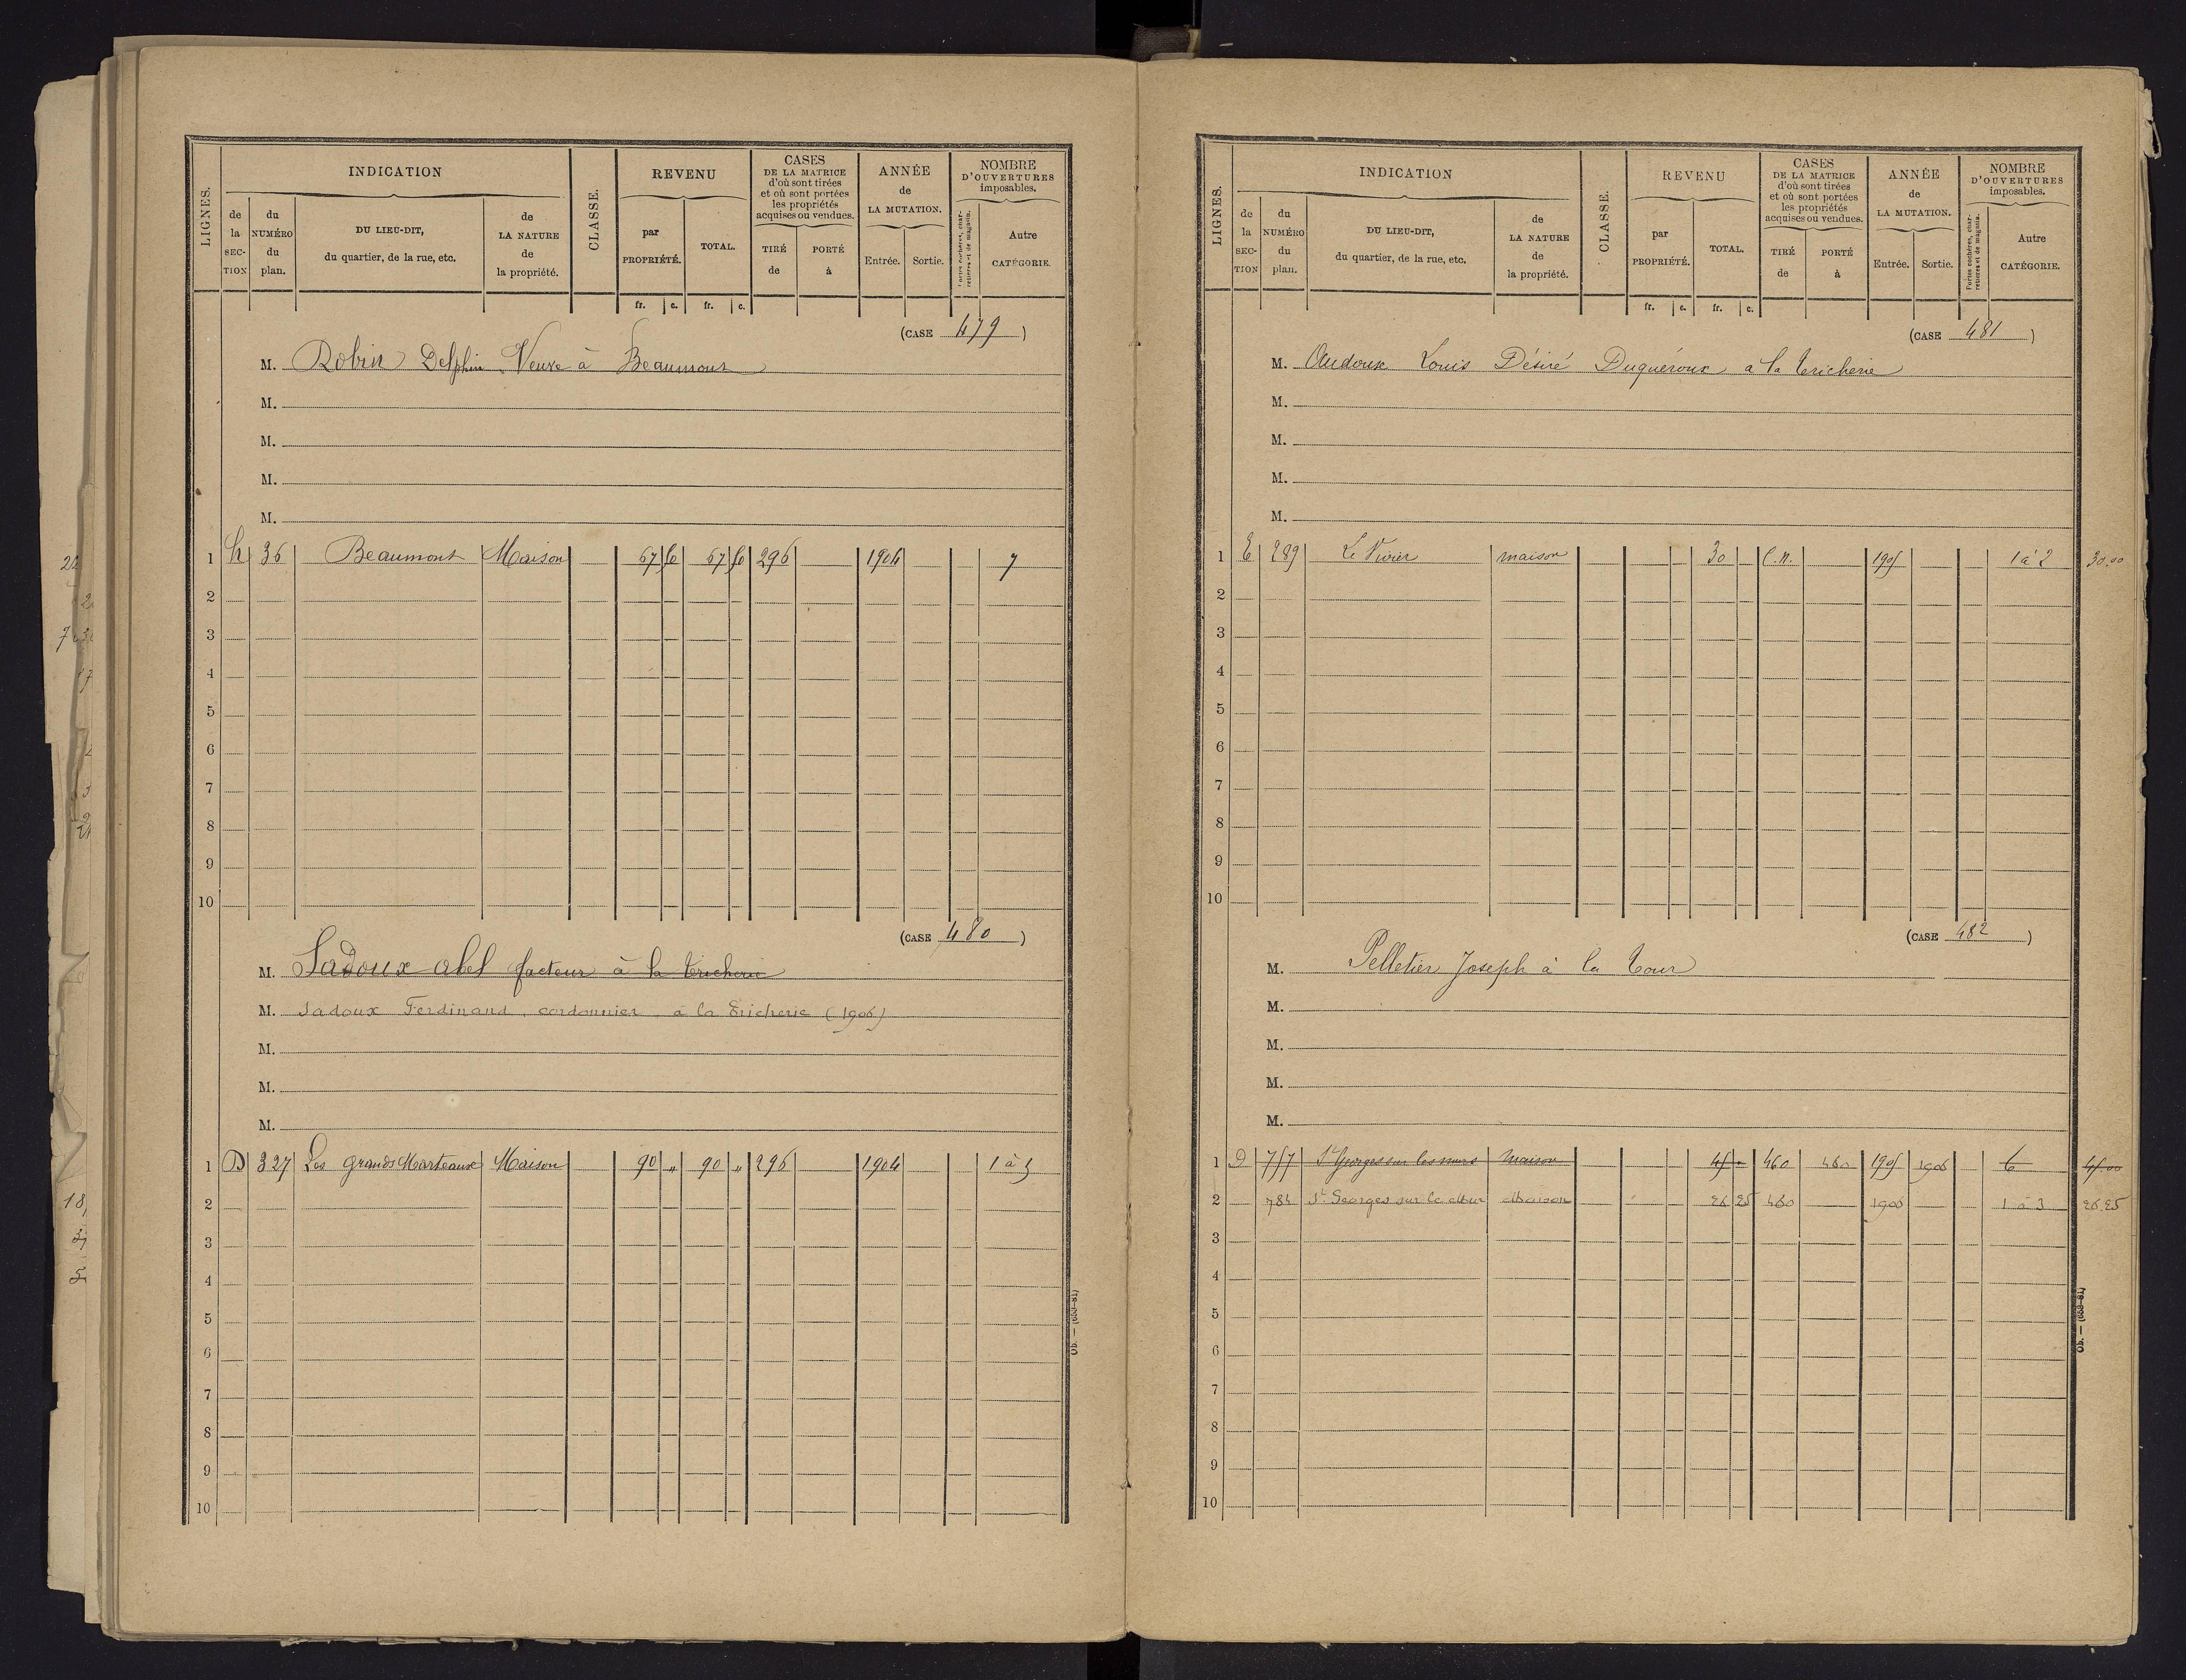 LIGNES.
INDICATION
de la SECTION
du NUMÉRO du plan.
DU LIEU-DIT, du quartier, de la rue, etc.
de LA NATURE de la propriété.
CLASSE.
REVENU
par PROPRIÉTÉ.
TOTAL.
CASES DE LA MATRICE d'où sont tirées et où sont portées les propriétés acquises ou vendues.
TIRÉ de
PORTÉ à
ANNÉE de LA MUTATION.
Entrée.
Sortie.
NOMBRE D'OUVERTURES imposables.
Portes cochères, charretières et de magasin.
Autre CATÉGORIE.
fr. c. fr. c.
(CASE 479)
M. Robin Delphin Veuve à Beaumont
M.
M.
M.
M.
1 36 Beaumont Maison 296 1904 7
2
3
4
5
6
7
8
9
10
(CASE 480)
M. Sadoux abel facteur à la tricherie
M. Sadoux Ferdinand, cordonnier à la Tricherie (1906)
M.
M.
M.
1 D 327 Les grands Marteaux Maison 90 " 90 " 296 1904 1 à 5
2
3
4
5
6
7
8
9
10
Ob. — (653-81)
LIGNES.
INDICATION
de la SECTION
du NUMÉRO du plan.
DU LIEU-DIT, du quartier, de la rue, etc.
de LA NATURE de la propriété.
CLASSE.
REVENU
par PROPRIÉTÉ.
TOTAL.
CASES DE LA MATRICE d'où sont tirées et où sont portées les propriétés acquises ou vendues.
TIRÉ de
PORTÉ à
ANNÉE de LA MUTATION.
Entrée.
Sortie.
NOMBRE D'OUVERTURES imposables.
Portes cochères, charretières et de magasin.
Autre CATÉGORIE.
fr. c. fr. c.
(CASE 481)
M. Audoux Louis Désiré Duquéroux a la tricherie
M.
M.
M.
M.
1 E 289 Le Vivier maison 30 C.N. 1905 1 à 2 30.00
2
3
4
5
6
7
8
9
10
(CASE 482)
M. Pelletier Joseph à la Tour
M.
M.
M.
M.
1 D 757 St Georges sur les murs Maison 45 460 460 1905 1906 6 45.00
2 784 St Georges sur le Mur Maison 26 25 460 1906 1 à 3 26.25
3
4
5
6
7
8
9
10
Ob. — (653-81)